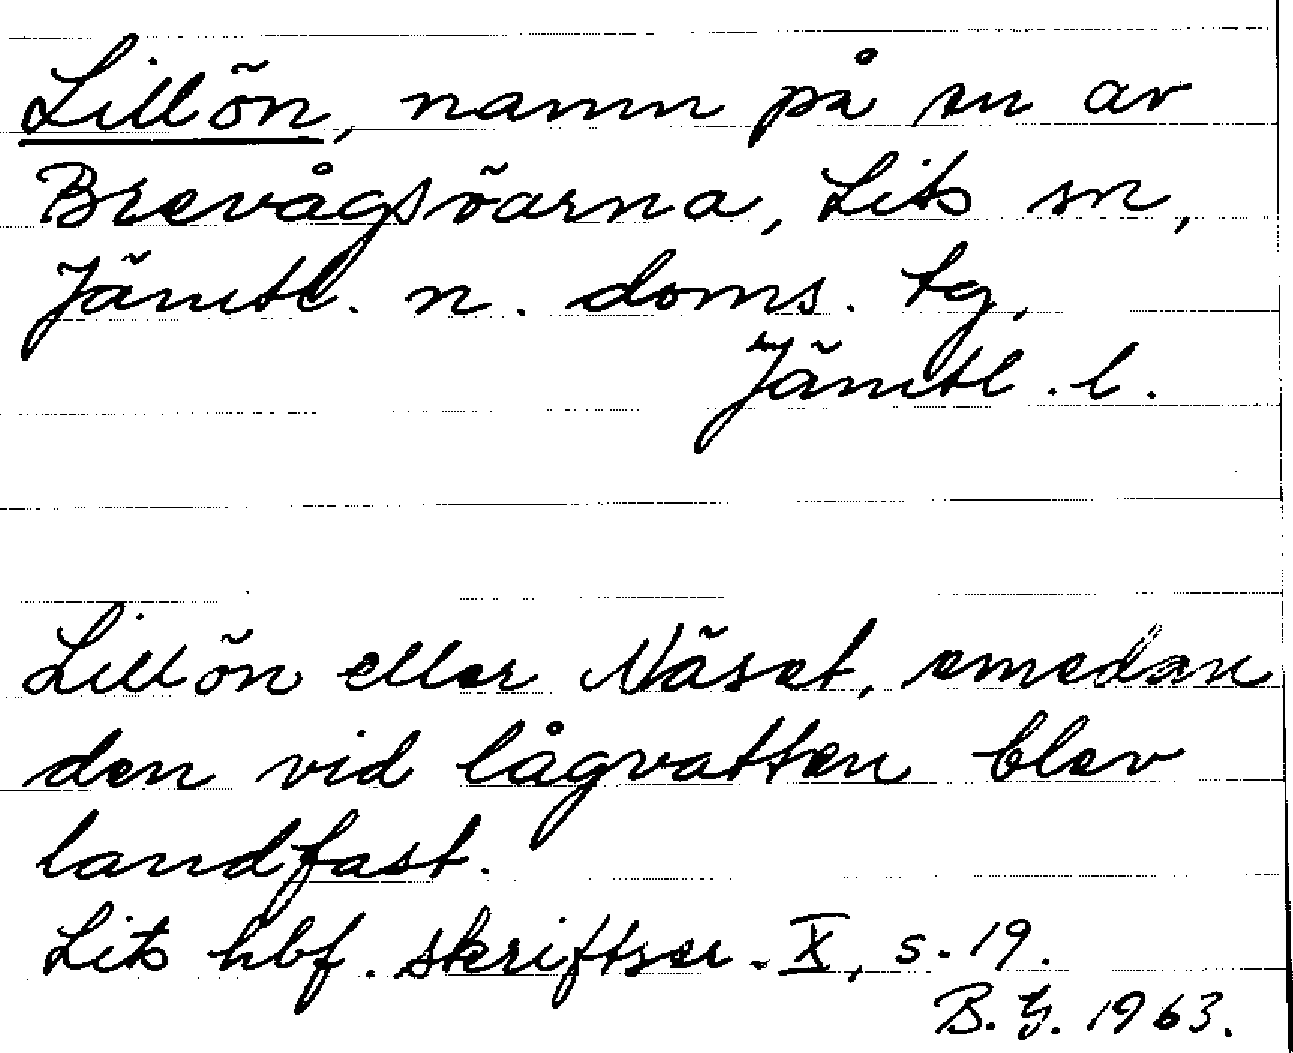 Lillön, namn på en av
Brevågsöarna, Lits sn,
Jämtl. n. doms. tg,
Jämtl. l.
Lillön eller Näset, emedan
den vid lågvatten blev
landfast.
Lits hbf. skriftser. X, s. 19.
B. G. 1963.